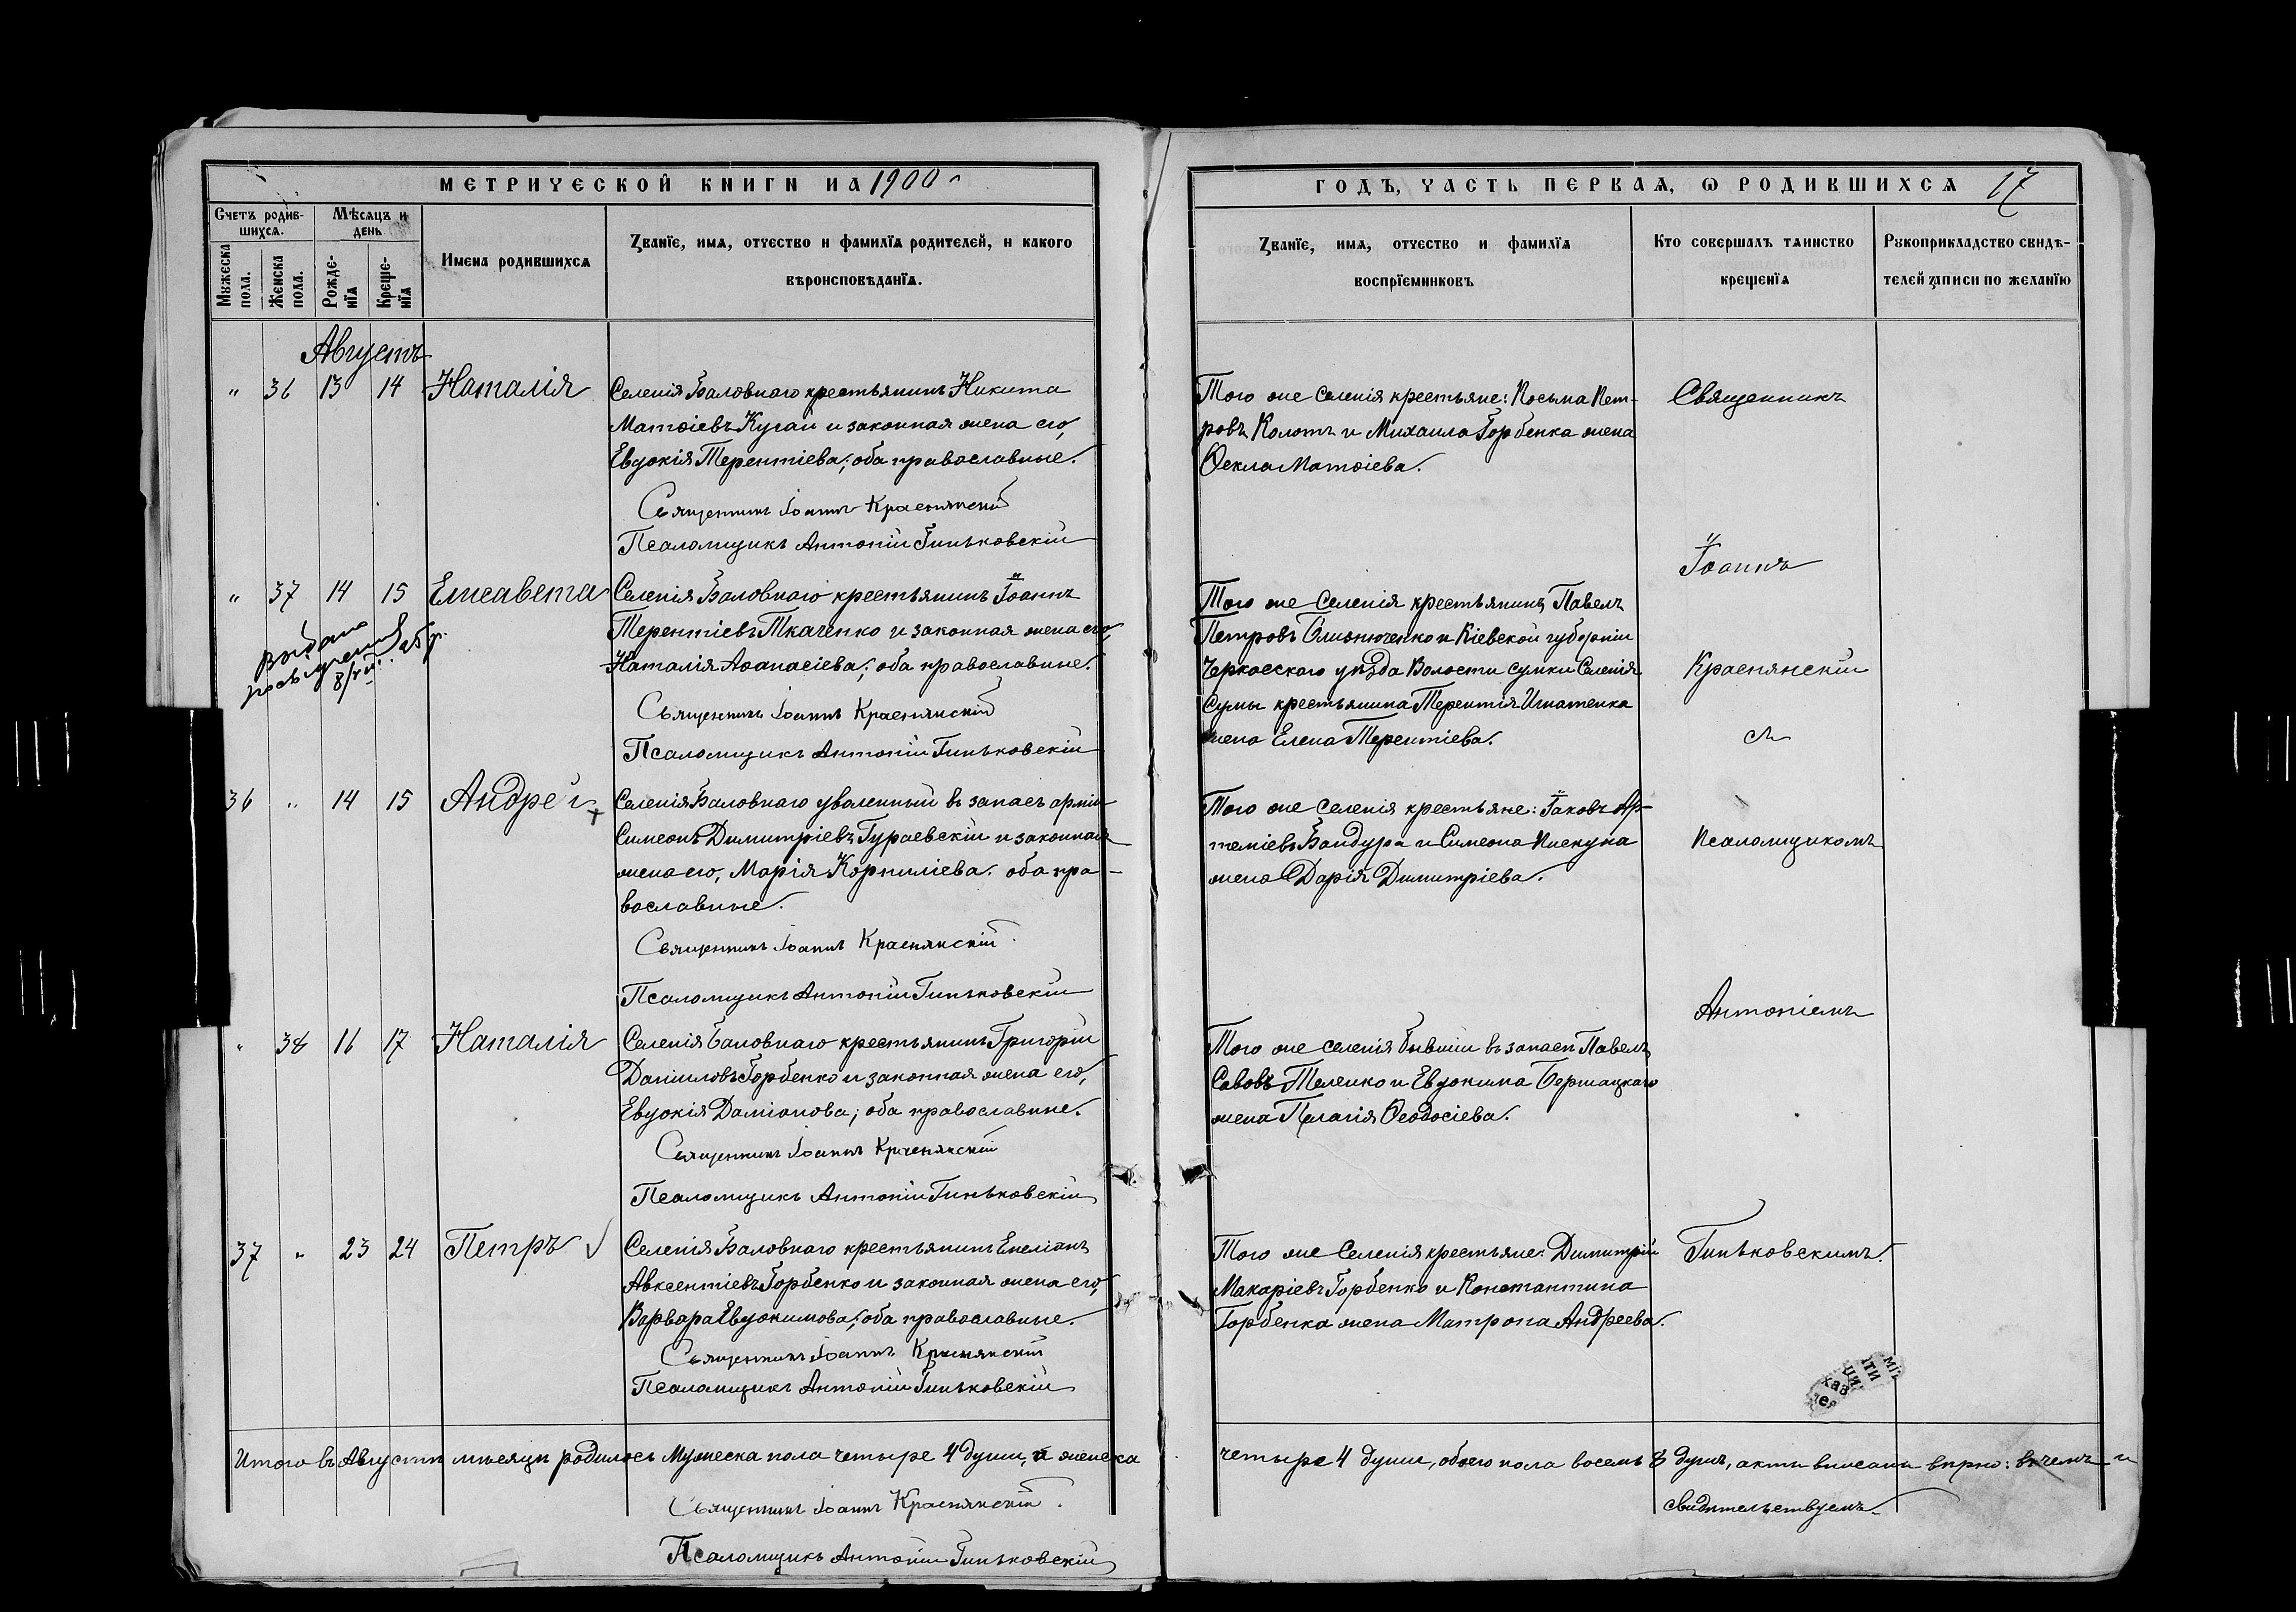 МЕТРИЧЕСКОЙ КНИГИ НА 1900
Счетъ родив-
шихся.
Мѣсяцъ и
день
Мужеска
пола.
Женска
пола.
Рожде-
нїя
Креще-
нїя
Имена родившихся
Званїе, имя, отчество и фамилїя родителей, и какого
вѣроисповѣданїя.
Августъ
" 36 13 14 Наталія
Селенія Баловнаго крестьянинъ Никита
Матѳіевъ Кучаи и законная жена его,
Евдокія Терентіева; оба православные.
Священникъ Іоаннъ Краснянскій
Псаломщикъ Антоній Гиньковскій
" 37 14 15 Елисавета
Селенія Баловнаго крестьянинъ Іоаннъ
Терентіевъ Ткаченко и законная жена его,
Наталія Аѳанасіева; оба православные.
Священникъ Іоаннъ Краснянскій
Псаломщикъ Антоній Гиньковскій
36 " 14 15 Андрей
Селенія Баловнаго уволенный въ запасъ арміи
Симеонъ Димитріевъ Гураевскій и законная
жена его, Марія Корниліева. оба пра-
вославные.
Священникъ Іоаннъ Краснянскій.
Псаломщикъ Антоній Гиньковскій
" 38 16 17 Наталія
Селенія Баловнаго крестьянинъ Григорій
Даніиловъ Горбенко и законная жена его,
Евдокія Даміанова; оба православные.
Священникъ Іоаннъ Краснянскій
Псаломщикъ Антоній Гиньковскій
37 " 23 24 Петръ
Селенія Баловнаго крестьянинъ Емеліанъ
Авксентіевъ Горбенко и законная жена его,
Варвара Евдокимова; оба православные.
Священникъ Іоаннъ Краснянскій
Псаломщикъ Антоній Гиньковскій
Итого въ Августѣ мѣсяцѣ родилось Мужеска пола четыре 4 души, а женска
Священникъ Іоаннъ Краснянскій.
Псаломщикъ Антоній Гиньковскій
ГОДЪ, ЧАСТЬ ПЕРВАЯ, Ѡ РОДИВШИХСЯ 17
Званїе, имя, отчество и фамилїя
воспрїемниковъ
Кто совершалъ таинство
крещенїя
Рукоприкладство свидѣ-
телей записи по желанїю
Того же селенія крестьяне: Косьма Пет-
ровъ Колотъ и Михаила Горбенка жена
Ѳекла Матѳіева.
Того же Селенія крестьянинъ Павелъ
Петровъ Близнюченко и Кіевской губерніи
Черкасскаго уѣзда Волости Сумки Селенія
Сумы крестьянина Терентія Игнатенка
жена Елена Терентіева.
Того же Селенія крестьяне: Іаковъ Ар-
теміевъ Бандура и Симеона Пискуна
жена Дарія Димитріева.
Того же селенія бывшій въ запасѣ Павелъ
Савовъ Теленко и Евдокима Бершацкаго
жена Пелагія Ѳеодосіева.
Того же Селенія крестьяне: Димитрій
Макаріевъ Горбенко и Константина
Горбенка жена Матрона Андреева.
Священникъ
Іоаннъ
Краснянскій
съ
Псаломщикомъ
Антоніемъ
Гиньковскимъ.
четыре 4 души, обоего пола восемь 8 душъ, акты вписаны вѣрно: въ чемъ и
свидѣтельствуемъ.